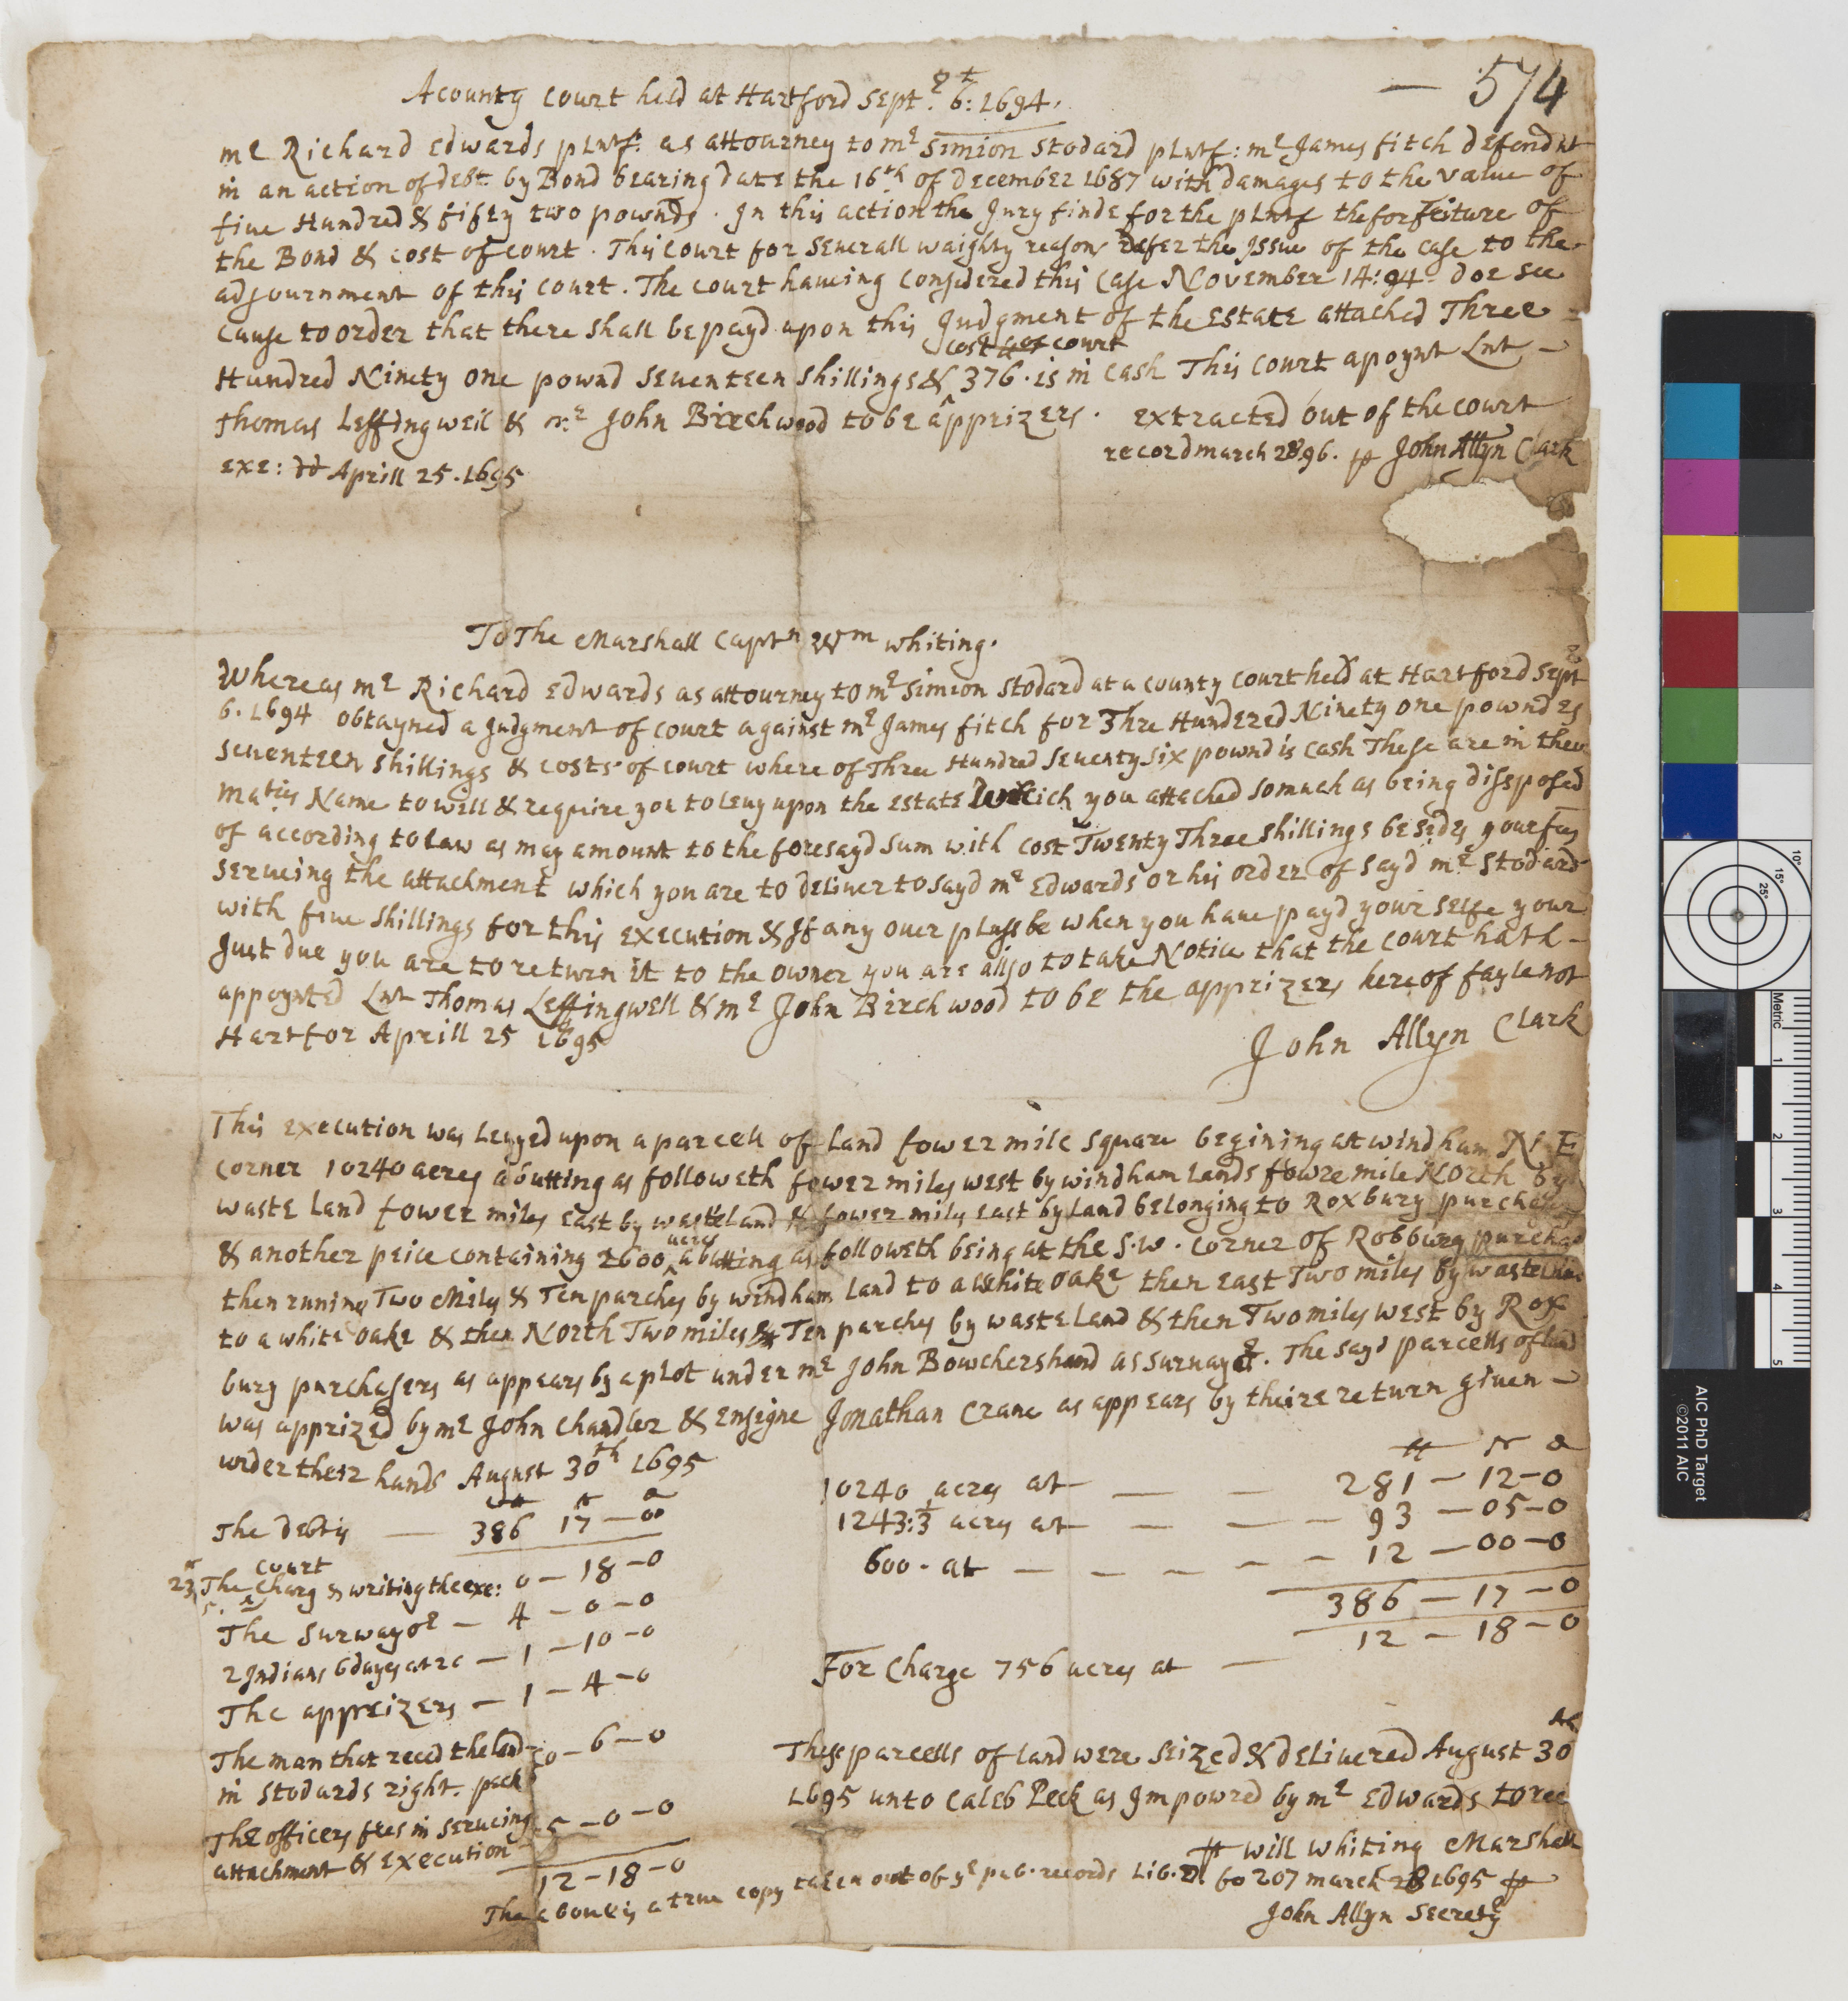 — 574
A county Court held at Hartford Septr 6t: 1694.
mr Richard Edwards plntf: as attourney to mr Simion Stodard plntf: mr James fitch defendnt
in an action of debt by Bond bearing date the 16th of December 1687 with damages to the value of
fiue Hundred & fifty two pownds. In this action the Jury finde for the plntf the forfeiture of
the Bond & cost of court. This Court for seuerall waighty reasons Refer the Issue of the case to the
adjournment of this court. The court haueing Considered this Case November 14: 94 doe see
cause to order that there shall be payd upon this Judgment of the Estate attached Three
cost of court
Hundred Ninety one pownd seuenteen shillings & 376. is in cash This Court apoynt Lnt
Thomas Leffingwell & mr John Birchwood to be apprizers. Extracted out of the court
record march 28 96. p John Allyn Clark
Exe: dd Aprill 25. 1695
To The Marshall Captn Wm Whiting.
Whereas mr Richard Edwards as attourney to mr Simeon Stodard at a County Court held at Hartford Septr
6. 1694 obtayned a Judgment of court against mr James fitch for Thre Hundered Ninety one powndes
seuenteen shillings & costs of court where of Three Hundred Seuenty six pownd is cash These are in their
maties Name to will & require you to leuy upon the estate which you attached somuch as being disposed
of according to law as may amount to the foresayd Sum with cost Twenty Three shillings besides your fees
serueing the attachment which you are to deliuer to sayd mr Edwards or his order of sayd mr Stodard
with fiue shillings for this execution & If any ouer plusse be when you haue payd your selfe your
Just due you are to return it to the owner you are allso to take Notice that the Court hath
appoynted Lnt Thomas Leffingwell & mr John Birchwood to be the apprizers hereof fayle not
Hartfor Aprill 25 1695
John Allyn Clark
This execution was leuyed upon a parcell of Land fower mile square begining at windham N E
Corner 10240 acres abutting as followeth fower miles west by windham Lands fowre mile North by
waste Land fower miles East by waste land & fower miles East by land belonging to Roxbury purchasers
acres
& another peice containing 2600 abutting as followeth being at the S.W. corner of Robbury purchas
then runing Two Miles & Ten parches by windham Land to a white oake then East Two miles by waste land
to a white oake & then North Two miles & Ten parches by waste Land & then Two miles west by Rox
bury purchasers as appears by a plot under mr John Bowchers hand as suruayer. The sayd parcells of land
was apprized by mr John Chandler & Ensigne Jonathan Crane as appears by theire return giuen
under their hands August 30th 1695
The Debt is — 386 17 — 00
Court
23 The Charg & writing the exe: 0 — 18 — 0
The Surwayor — 4 — 0 — 0
2 Indians 6 dayes at 2s — 1 — 10 — 0
The apprizers — 1 — 4 — 0
The man that reced the land
in Stodards right. peck 0 — 6 — 0
The officers fees in serueing
attachment & Execution 5 — 0 — 0
12 — 18 — 0
10240 acres at — — — 281 — 12 — 0
1243:1/3 acres at — — — 93 — 05 — 0
600. at — — — — 12 — 00 — 0
386 — 17 — 0
For Charge 756 acres at — 12 — 18 — 0
These parcells of land were seized & deliuered August 30th
1695 unto Caleb Peck as Impowred by mr Edwards to rec
p will Whiting Marshall
The aboue is a true copy taken out of ye pub. records Lib. D fo 207 march 28 1695 p
John Allyn Secrety